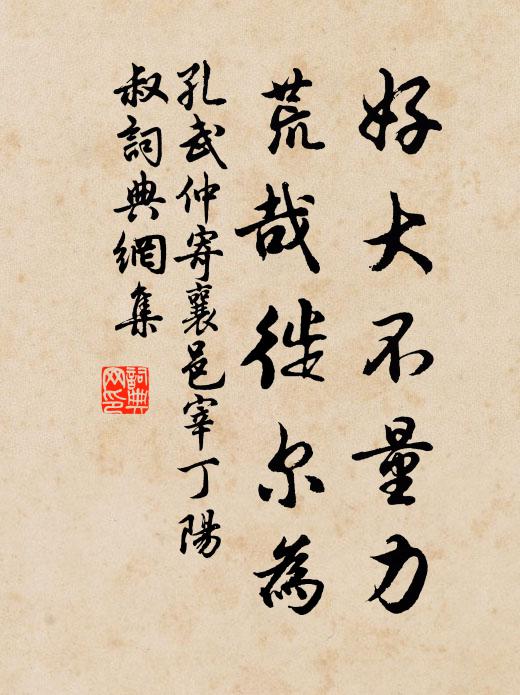 好大不量力
荒哉徒尔為
孔武仲寄襄邑宰丁陽
叔詞典網集
詞典网印